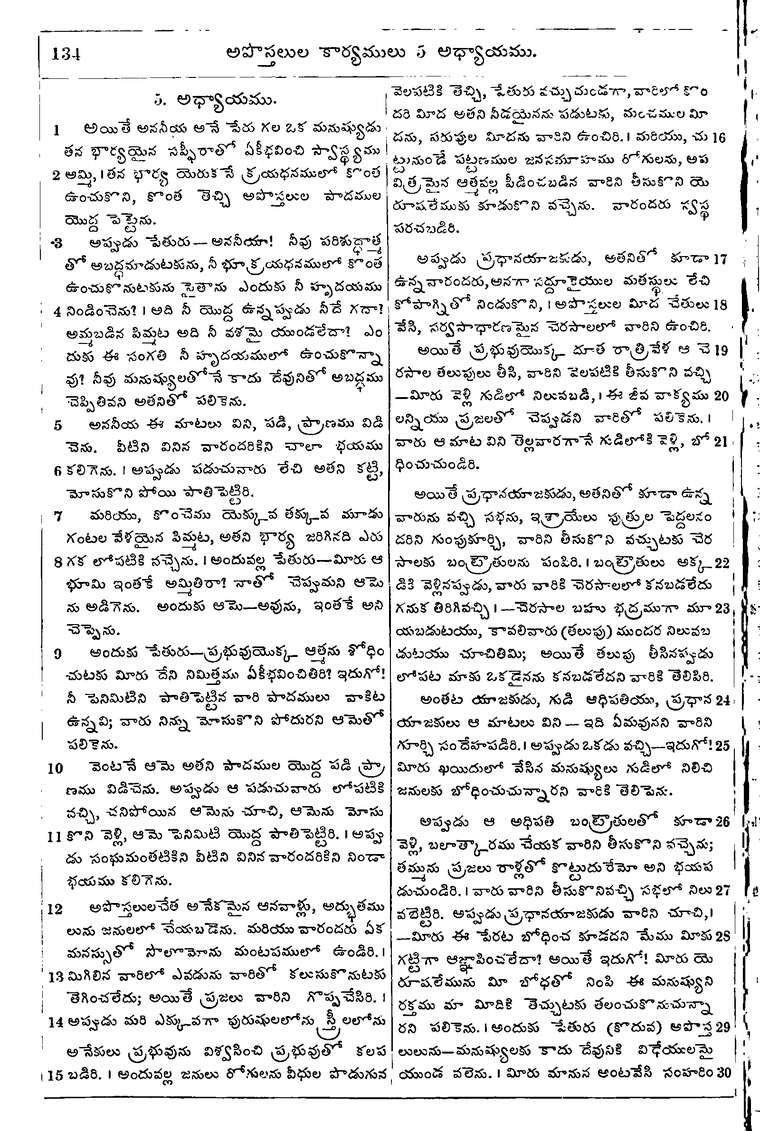 134 అపొస్తలుల కార్యములు 5 అధ్యాయము.
5. అధ్యాయము.
1 అయితే అననీయ అనే పేరు గల ఒక మనుష్యుడు
తన భార్యయైన సప్ఫీరాతో ఏకీభవించి స్వాస్థ్యము
2 అమ్మి, । తన భార్య యెరుకనే క్రయధనములో కొంత
ఉంచుకొని, కొంత తెచ్చి అపొస్తలుల పాదముల
యొద్ద పెట్టెను.
3 అప్పుడు పేతురు—అననీయా! నీవు పరిశుద్ధాత్మ
తో అబద్ధమాడుటకును, నీ భూక్రయధనములో కొంత
ఉంచుకొనుటకును సైతాను ఎందుకు నీ హృదయము
4 నిండించెను? । అది నీ యొద్ద ఉన్నప్పుడు నీదే గదా?
అమ్మబడిన పిమ్మట అది నీ వశమై యుండలేదా? ఎం
దుకు ఈ సంగతి నీ హృదయములో ఉంచుకొన్నా
వు? నీవు మనుష్యులతోనే కాదు దేవునితో అబద్ధము
చెప్పితివని అతనితో పలికెను.
5 అననీయ ఈ మాటలు విని, పడి, ప్రాణము విడి
చెను. వీటిని వినిన వారందరికిని చాలా భయము
6 కలిగెను. । అప్పుడు పడుచువారు లేచి అతని కట్టి,
మోసుకొని పోయి పాతిపెట్టిరి.
7 మరియు, కొంచెము యెక్కువ తక్కువ మూడు
గంటల వేళయైన పిమ్మట, అతని భార్య జరిగినది ఎరు
8 గక లోపటికి వచ్చెను. । అందువల్ల పేతురు—మీరు ఆ
భూమి ఇంతకే అమ్మితిరా? నాతో చెప్పుమని ఆమె
ను అడిగెను. అందుకు ఆమె—అవును, ఇంతకే అని
చెప్పెను.
9 అందుకు పేతురు—ప్రభువుయొక్క ఆత్మను శోధిం
చుటకు మీరు దేని నిమిత్తము ఏకీభవించితిరి? ఇదుగో!
నీ పెనిమిటిని పాతిపెట్టిన వారి పాదములు వాకిట
ఉన్నవి; వారు నిన్ను మోసుకొని పోదురని ఆమెతో
పలికెను.
10 వెంటనే ఆమె అతని పాదముల యొద్ద పడి ప్రా
ణము విడిచెను. అప్పుడు ఆ పడుచువారు లోపటికి
వచ్చి, చనిపోయిన ఆమెను చూచి, ఆమెను మోసు
11 కొని వెళ్లి, ఆమె పెనిమిటి యొద్ద పాతిపెట్టిరి. । అప్పు
డు సంఘమంతటికిని వీటిని వినిన వారందరికిని నిండా
భయము కలిగెను.
12 అపొస్తలులచేత అనేకమైన ఆనవాళ్లు, అద్భుతము
లును జనులలో చేయబడెను. మరియు వారందరు ఏక
మనస్సుతో సొలొమోను మంటపములో ఉండిరి. ।
13 మిగిలిన వారిలో ఎవడును వారితో కలుసుకొనుటకు
తెగించలేదు; అయితే ప్రజలు వారిని గొప్పచేసిరి. ।
14 అప్పుడు మరి ఎక్కువగా పురుషులలోను స్త్రీలలోను
అనేకులు ప్రభువును విశ్వసించి ప్రభువుతో కలప
15 బడిరి. । అందువల్ల జనులు రోగులను వీధుల పొడుగున
వెలపటికి తెచ్చి, పేతురు వచ్చుచుండగా, వారిలో కొం
దరి మీద అతని నీడయైనను పడుటకు, మంచముల మీ
దను, పరుపుల మీదను వారిని ఉంచిరి. । మరియు, చు 16
ట్టునుండే పట్టణముల జనసమూహము రోగులను, అప
విత్రమైన ఆత్మవల్ల పీడించబడిన వారిని తీసుకొని యె
రూషలేముకు కూడుకొని వచ్చెను. వారందరు స్వస్థ
పరచబడిరి.
అప్పుడు ప్రధానయాజకుడు, అతనితో కూడా 17
ఉన్నవారందరు, అనగా సద్దూకైయుల మతస్థులు లేచి
కోపాగ్నితో నిండుకొని, । అపొస్తలుల మీద చేతులు 18
వేసి, సర్వసాధారణమైన చెరసాలలో వారిని ఉంచిరి.
అయితే ప్రభువుయొక్క దూత రాత్రివేళ ఆ చె 19
రసాల తలుపులు తీసి, వారిని వెలపటికి తీసుకొని వచ్చి
—మీరు వెళ్లి గుడిలో నిలువబడి, । ఈ జీవ వాక్యము 20
లన్నియు ప్రజలతో చెప్పుడని వారితో పలికెను. ।
వారు ఆ మాట విని తెల్లవారగానే గుడిలోకి వెళ్లి, బో 21
ధించుచుండిరి.
అయితే ప్రధానయాజకుడు, అతనితో కూడా ఉన్న
వారును వచ్చి సభను, ఇశ్రాయేలు పుత్రుల పెద్దలనం
దరిని గుంపుకూర్చి, వారిని తీసుకొని వచ్చుటకు చెర
సాలకు బంట్రౌతులను పంపిరి. । బంట్రౌతులు అక్క 22
డికి వెళ్లినప్పుడు, వారు వారికి చెరసాలలో కనబడలేదు
గనుక తిరిగివచ్చి । —చెరసాల బహు భద్రముగా మూ 23
యబడుటయు, కావలివారు (తలుపు) ముందర నిలువబ
డుటయు చూచితిమి; అయితే తలుపు తీసినప్పుడు
లోపట మాకు ఒకడైనను కనబడలేదని వారికి తెలిపిరి.
అంతట యాజకుడు, గుడి అధిపతియు, ప్రధాన 24
యాజకులు ఆ మాటలు విని — ఇది ఏమవునని వారిని
గూర్చి సందేహపడిరి. । అప్పుడు ఒకడు వచ్చి—ఇదుగో! 25
మీరు ఖయిదులో వేసిన మనుష్యులు గుడిలో నిలిచి
జనులకు బోధించుచున్నారని వారికి తెలిపెను.
అప్పుడు ఆ అధిపతి బంట్రౌతులతో కూడా 26
వెళ్లి, బలాత్కారము చేయక వారిని తీసుకొని వచ్చెను;
తమ్మును ప్రజలు రాళ్లతో కొట్టుదురేమో అని భయప
డుచుండిరి. । వారు వారిని తీసుకొనివచ్చి సభలో నిలు 27
వబెట్టిరి. అప్పుడు ప్రధానయాజకుడు వారిని చూచి, ।
—మీరు ఈ పేరట బోధించ కూడదని మేము మీకు 28
గట్టిగా ఆజ్ఞాపించలేదా? అయితే ఇదుగో! మీరు యె
రూషలేమును మీ బోధతో నింపి ఈ మనుష్యుని
రక్తము మా మీదికి తెచ్చుటకు తలంచుకొనుచున్నా
రని పలికెను. । అందుకు పేతురు (కొదువ) అపొస్త 29
లులును—మనుష్యులకు కాదు దేవునికి విధేయులమై
యుండ వలెను. । మీరు మానున అంటవేసి సంహరిం 30